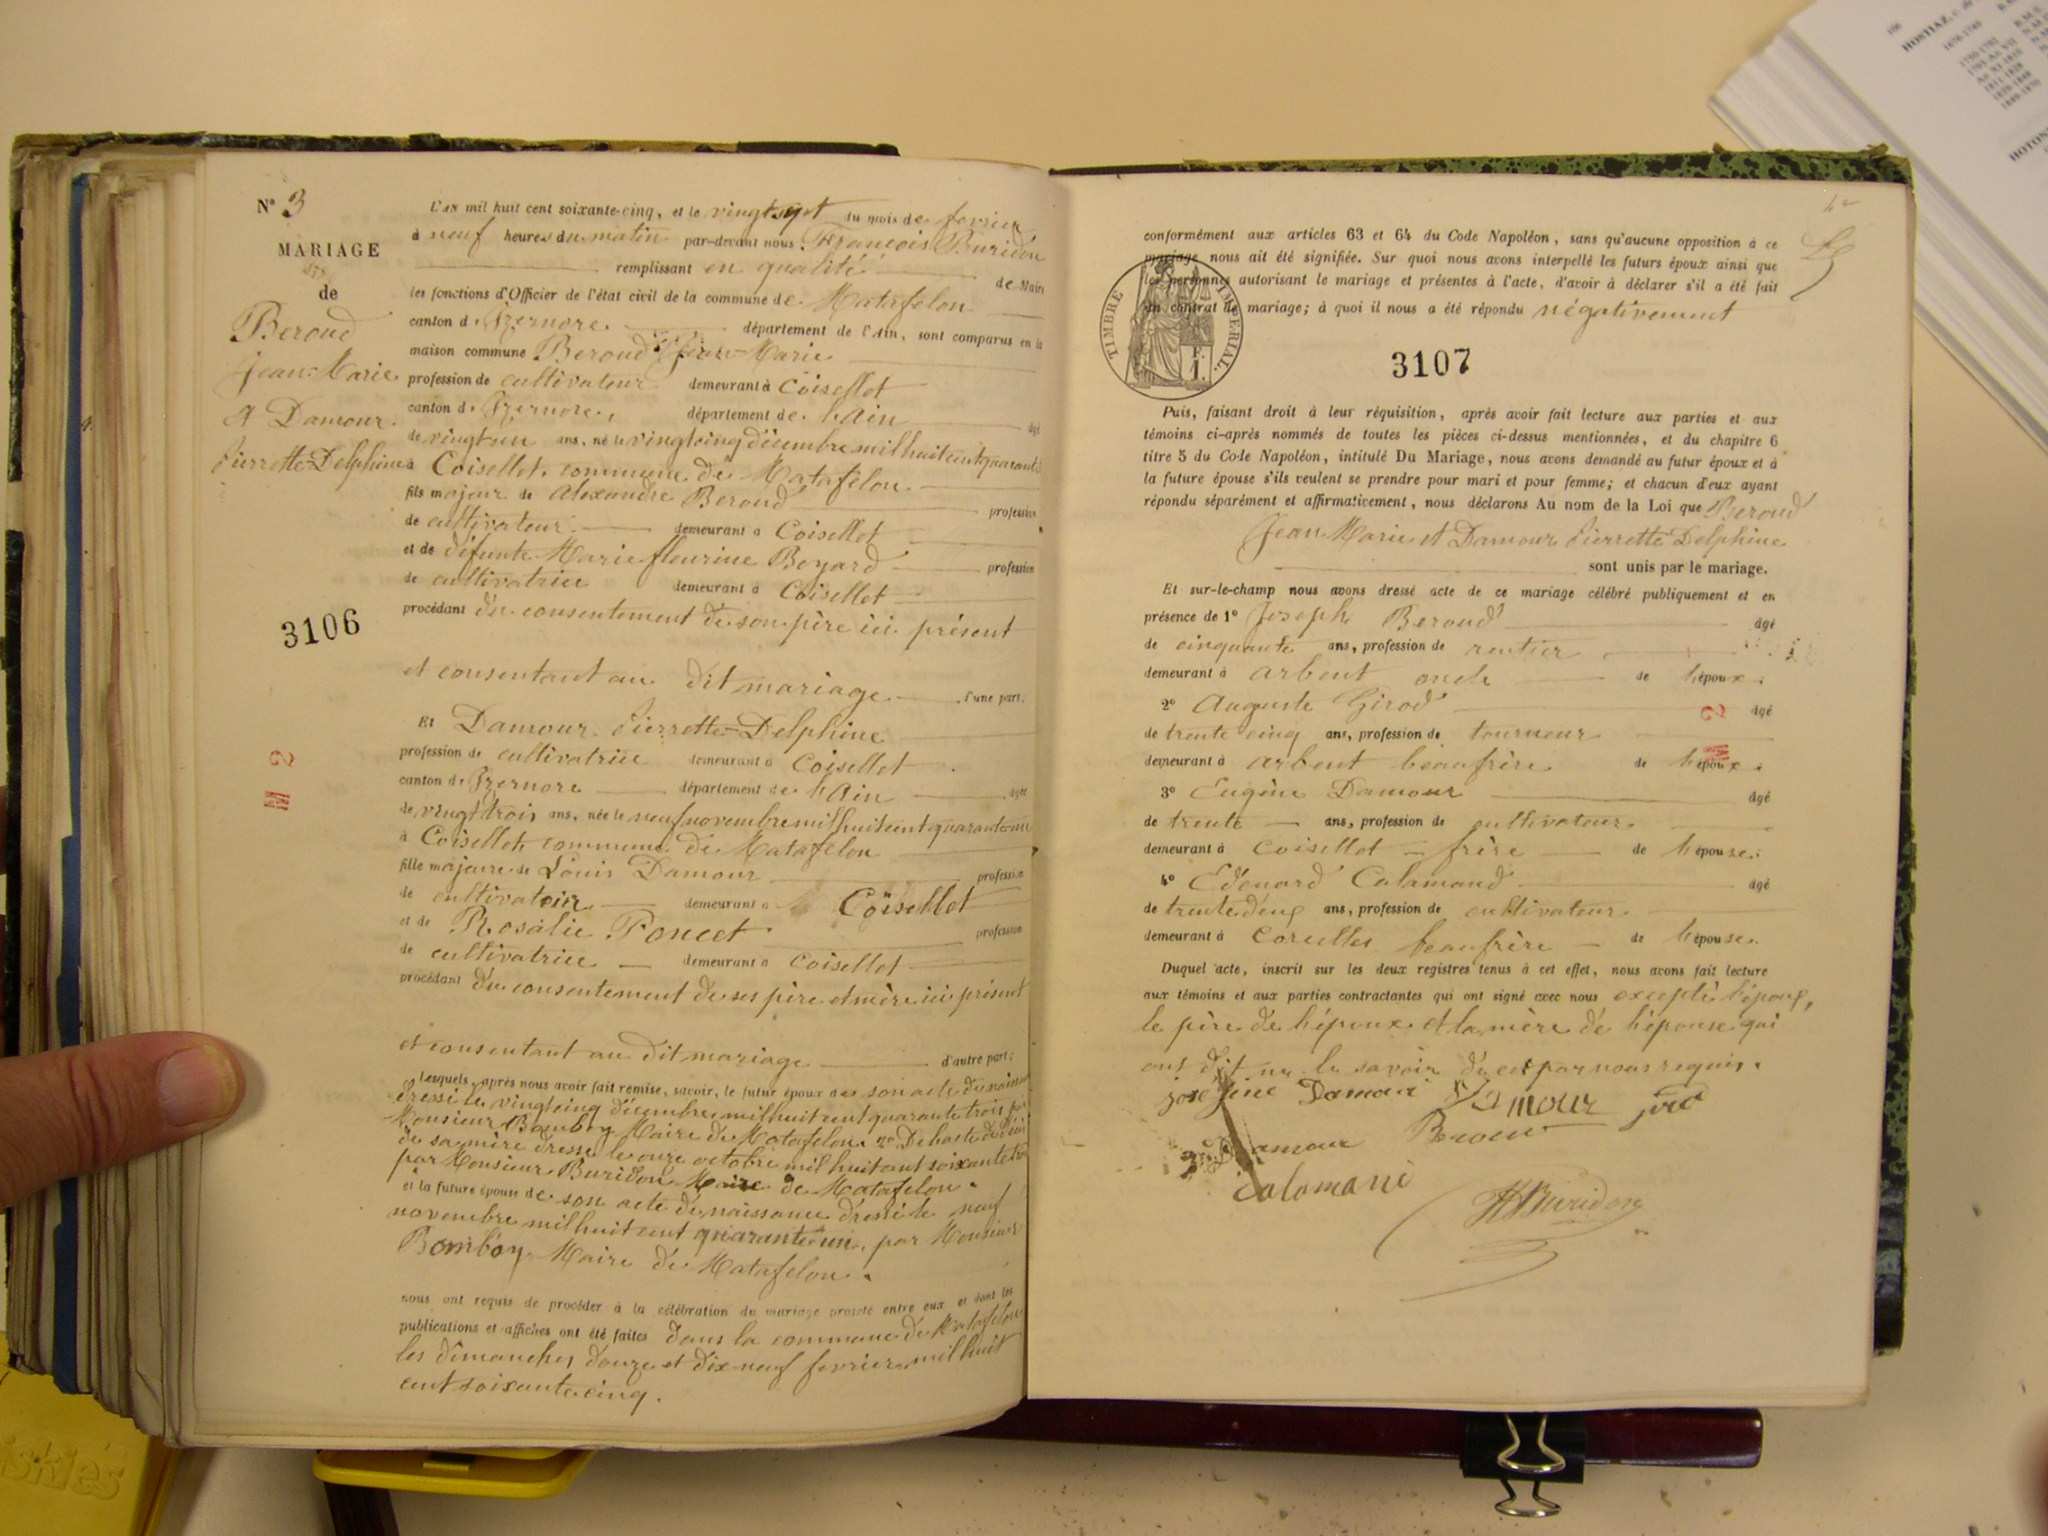 N° 3
MARIAGE
de
Beroud
Jean-Marie
et Damour
Pierrette-Delphine
3106
M 2
L'AN mil huit cent soixante-cinq, et le vingt sept du mois de fevrier
à neuf heures du matin par-devant nous François Buridon
remplissant en qualité de Maire
les fonctions d'Officier de l'état civil de la commune de Matafelon
canton d'Izernore département de l'Ain, sont comparus en la
maison commune Beroud Jean-Marie
profession de cultivateur demeurant à Coisellet
canton d'Izernore, département de l'Ain âgé
de vingt un ans, né le vingt cinq décembre mil huit cent quarante
à Coisellet, commune de Matafelon
fils majeur de Alexandre Beroud profession
de cultivateur demeurant à Coisellet
et de défunte Marie fleurine Boyard profession
de cultivatrice demeurant à Coisellet
procédant du consentement de son père ici présent
et consentant au dit mariage d'une part.
Et Damour Pierrette-Delphine
profession de cultivatrice demeurant à Coisellet
canton d'Izernore département de l'Ain âgée
de vingt trois ans, née le neuf novembre mil huit cent quarante un
à Coisellet, commune de Matafelon
fille majeure de Louis Damour profession
de cultivateur demeurant à Coisellet
et de Rosalie Poncet profession
de cultivatrice demeurant à Coisellet
procédant du consentement de ses père et mère ici présent
et consentant au dit mariage d'autre part;
Lesquels, après nous avoir fait remise, savoir, le futur époux de son acte de naissance
dressé le vingt cinq décembre mil huit cent quarante trois par
Monsieur Bomboy Maire de Matafelon. 2° De l'acte de décès
de sa mère dressé le onze octobre mil huit cent soixante trois
par Monsieur Buridon Maire de Matafelon.
et la future épouse de son acte de naissance dressé le neuf
novembre mil huit cent quarante un, par Monsieur
Bomboy Maire de Matafelon.
nous ont requis de procéder à la célébration du mariage projeté entre eux et dont les
publications et affiches ont été faites dans la commune de Matafelon
les dimanches douze et dix neuf fevrier mil huit
cent soixante cinq.
conformément aux articles 63 et 64 du Code Napoléon, sans qu'aucune opposition à ce
mariage nous ait été signifiée. Sur quoi nous avons interpellé les futurs époux ainsi que
les personnes autorisant le mariage et présentes à l'acte, d'avoir à déclarer s'il a été fait
un contrat de mariage; à quoi il nous a été répondu négativement
TIMBRE IMPÉRIAL
3107
Puis, faisant droit à leur réquisition, après avoir fait lecture aux parties et aux
témoins ci-après nommés de toutes les pièces ci-dessus mentionnées, et du chapitre 6
titre 5 du Code Napoléon, intitulé Du Mariage, nous avons demandé au futur époux et à
la future épouse s'ils veulent se prendre pour mari et pour femme; et chacun d'eux ayant
répondu séparément et affirmativement, nous déclarons Au nom de la Loi que Beroud
Jean Marie et Damour Pierrette Delphine
sont unis par le mariage.
Et sur-le-champ nous avons dressé acte de ce mariage célébré publiquement et en
présence de 1° Joseph Beroud âgé
de cinquante ans, profession de rentier
demeurant à arbent oncle de l'époux.
2° Auguste Girod âgé
de trente cinq ans, profession de tourneur
demeurant à arbent beaufrère de l'époux.
3° Eugène Damour âgé
de trente ans, profession de cultivateur
demeurant à Coisellet frère de l'épouse.
4° Edouard Calamand âgé
de trente deux ans, profession de cultivateur
demeurant à Corcelles beaufrère de l'épouse.
M 2
Duquel acte, inscrit sur les deux registres tenus à cet effet, nous avons fait lecture
aux témoins et aux parties contractantes qui ont signé avec nous excepté l'époux,
le père de l'époux et la mère de l'épouse qui
ont dit ne le savoir de ce par nous requis.
Damour
Damour
Calamand
Buridon